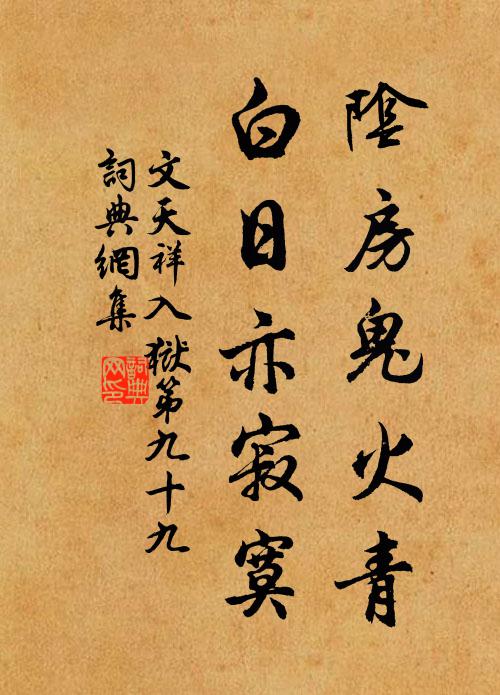 陰房鬼火青
白日亦寂寞
文天祥入獄第九十九
詞典網集
詞典網印